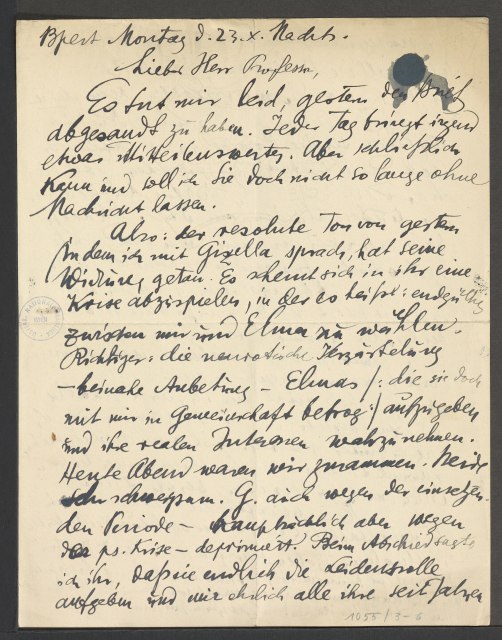 Bpest Montag d. 23.X. Nachts.
Lieber Herr Professor,
Es tut mir leid, gestern den Brief
abgesandt zu haben. Jeder Tag bringt irgend
etwas Mitteilenswertes. Aber schließlich
kann und soll ich Sie doch nicht so lange ohne
Nachricht lassen.
Also: der resolute Ton von gestern
in dem ich mit Gisella sprach, hat seine
Wirkung getan. Es scheint sich in ihr eine
Krise abzuspielen, in der es heißt: endgültig
zwischen mir und Elma zu wählen.
Richtiger: die neurotische Verzärtelung
– beinahe Anbetung – Elmas /: die sie doch
mit mir in Gemeinschaft betrog :/ aufzugeben
und ihre realen Interessen wahrzunehmen.
Heute Abend waren wir zusammen. Beide
schweigsam. G. auch wegen der einsetzen-
den Periode – hauptsächlich aber wegen
der ps. Krise – deprimiert. Beim Abschied sagte
ich ihr, daß sie endlich die Leidensrolle
aufgeben und mir ehrlich alle ihre seit Jahren
1055/3-6